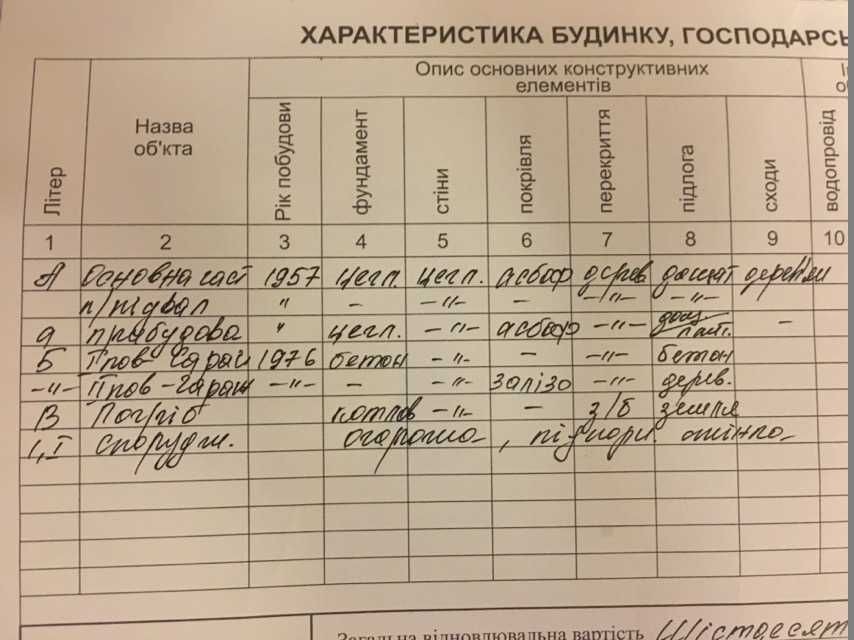 ХАРАКТЕРИСТИКА БУДИНКУ, ГОСПОДАРСЬ
Літер
Назва об'кта
Опис основних конструктивних елементів
Рік побудови
фундамент
стіни
покрівля
перекриття
підлога
сходи
водопровід
1 2 3 4 5 6 7 8 9 10
А Основна част 1957 цегл. цегл. асбоф дерев дощат дерев'ян
п/підвал " – –"– – –"– –"–
а прибудова " цегл. –"– асбоф –"– дощ –
Б І пов-Гараж 1976 бетон –"– – –"– бетон
–"– ІІ пов-Гараж –"– – –"– залізо –"– дерев.
В Погріб –"– – з/б земля
1,І споруди. огорожа , підпорн. стінка
Загальна відновлювальна вартість Шістдесят